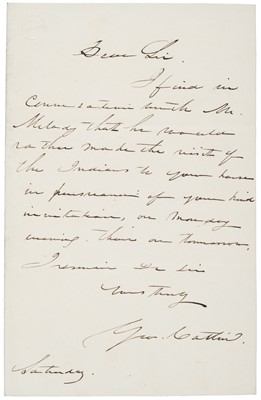 Dear Sir.
I find in
Conversation with Mr.
Melody that he would
rather make the visit of
the Indians to your house
in pursuance of your kind
invitation, on Monday
evening than on tomorrow,
I remain Dr Sir
Yours truly
Geo. Catlin.
Saturday.